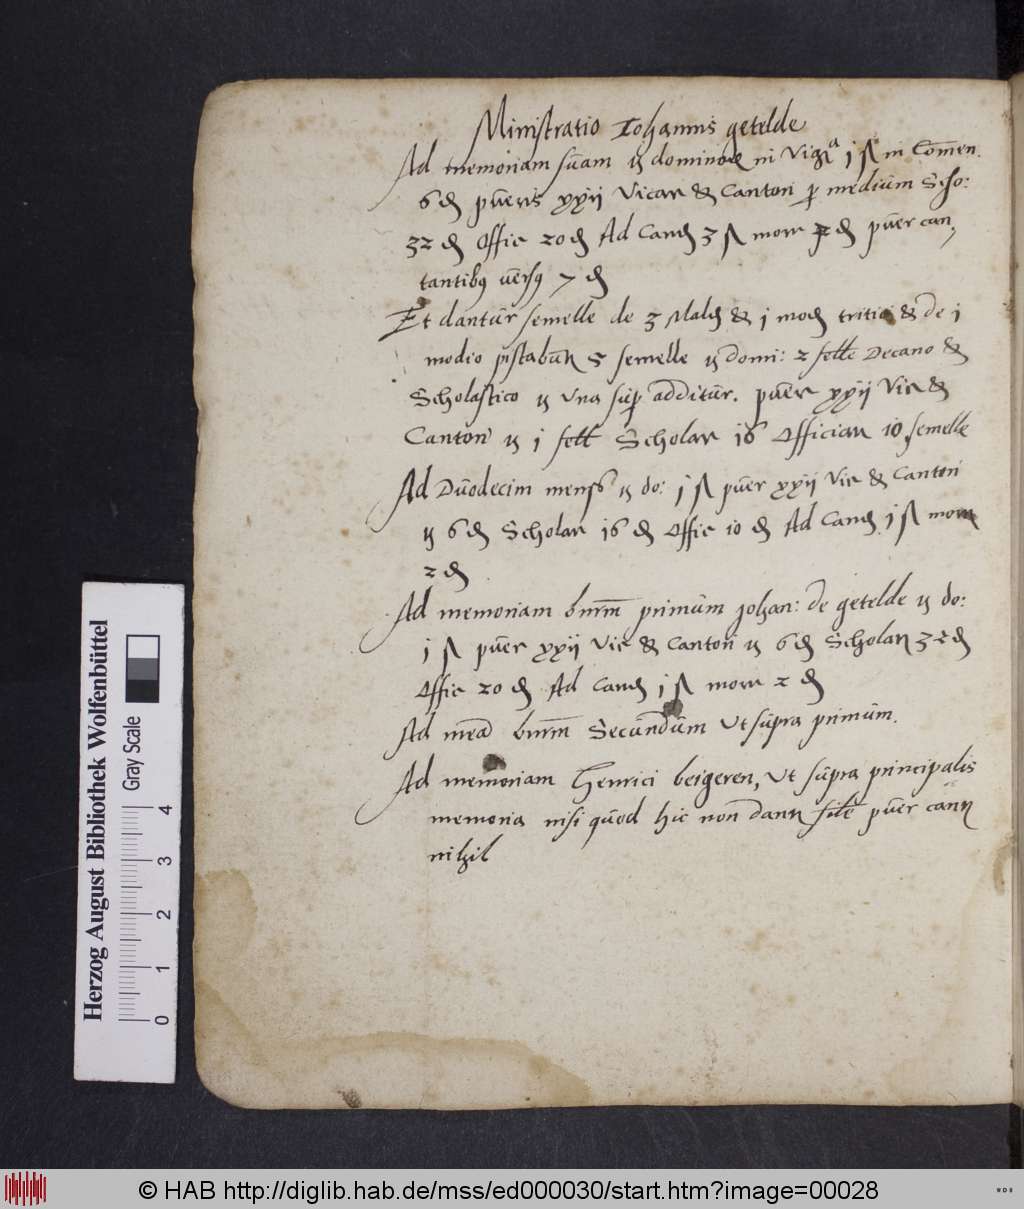 Ministratio Iohannis getelde
Ad memoriam suam dominor in Vigia j ß in Comen.
6 ₰ pueris xxij Vicar & Canton p medium Scho:
32 ₰ Offic 20 ₰ Ad Cand 3 ß morr 2 ₰ puer can,
tantibus versus 7 ₰
Et dantur semelle de 3 Mald & j mod tritici & de j
modio pistabun 5 semelle domi: 2 Decano &
Scholastico Una sup additur. puer xxij Vic &
Canton j Scholar 16 Officiar 10 semelle
Ad Duodecim mens do: j ß puer xxij Vic & Canton
6 ₰ Scholar 16 ₰ Offic 10 ₰ Ad Cand j ß morr
2 ₰
Ad memoriam burm primum johan: de getelde do:
j ß puer xxij Vic & Canton 6 ₰ Scholar 32 ₰
Offic 20 ₰ Ad Cand j ß morr 2 ₰
Ad mea burm Secundum Ut supra primum.
Ad memoriam Henrici beigeren, Ut supra principalis
memoria nisi quod hic non dant puer cann
nihil
Herzog August Bibliothek Wolfenbüttel
Gray Scale
0 1 2 3 4
© HAB http://diglib.hab.de/mss/ed000030/start.htm?image=00028